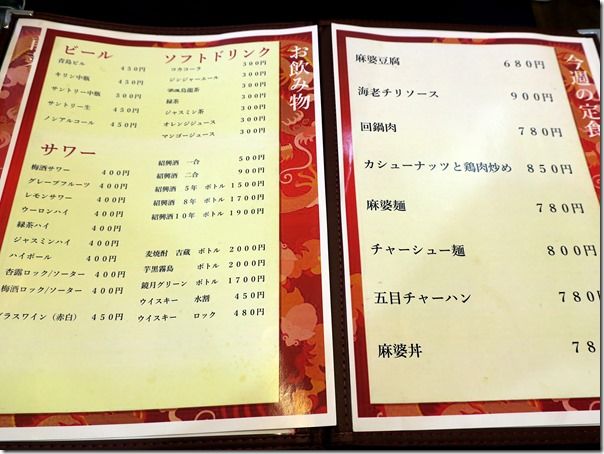 お飲み物
ビール
青島ビル 450円
キリン中瓶 450円
サントリー中瓶 550円
サントリー生 450円
ノンアルコール 450円
ソフトドリンク
コカコーラ 300円
ジンジャーエール 300円
烏龍茶 300円
緑茶 300円
ジャスミン茶 300円
オレンジジュース 300円
マンゴージュース 300円
サワー
梅酒サワー 400円
グレープフルーツ 400円
レモンサワー 400円
ウーロンハイ 400円
緑茶ハイ 400円
ジャスミンハイ 400円
ハイボール 400円
杏露ロック/ソーター 400円
梅酒ロック/ソーター 400円
グラスワイン（赤白） 450円
紹興酒 一合 500円
紹興酒 二合 900円
紹興酒 5年 ボトル 1500円
紹興酒 8年 ボトル 1700円
紹興酒10年 ボトル 1900円
麦焼酎 吉蔵 ボトル 2000円
芋黒霧島 ボトル 2000円
鏡月グリーン ボトル 1700円
ウイスキー 水割 450円
ウイスキー ロック 480円
今週の定食
麻婆豆腐 680円
海老チリソース 900円
回鍋肉 780円
カシューナッツと鶏肉炒め 850円
麻婆麺 780円
チャーシュー麺 800円
五目チャーハン 780
麻婆丼 78